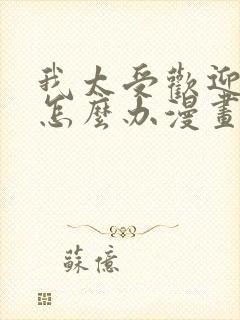 我太受歡迎
怎麼办漫畫
蘇億